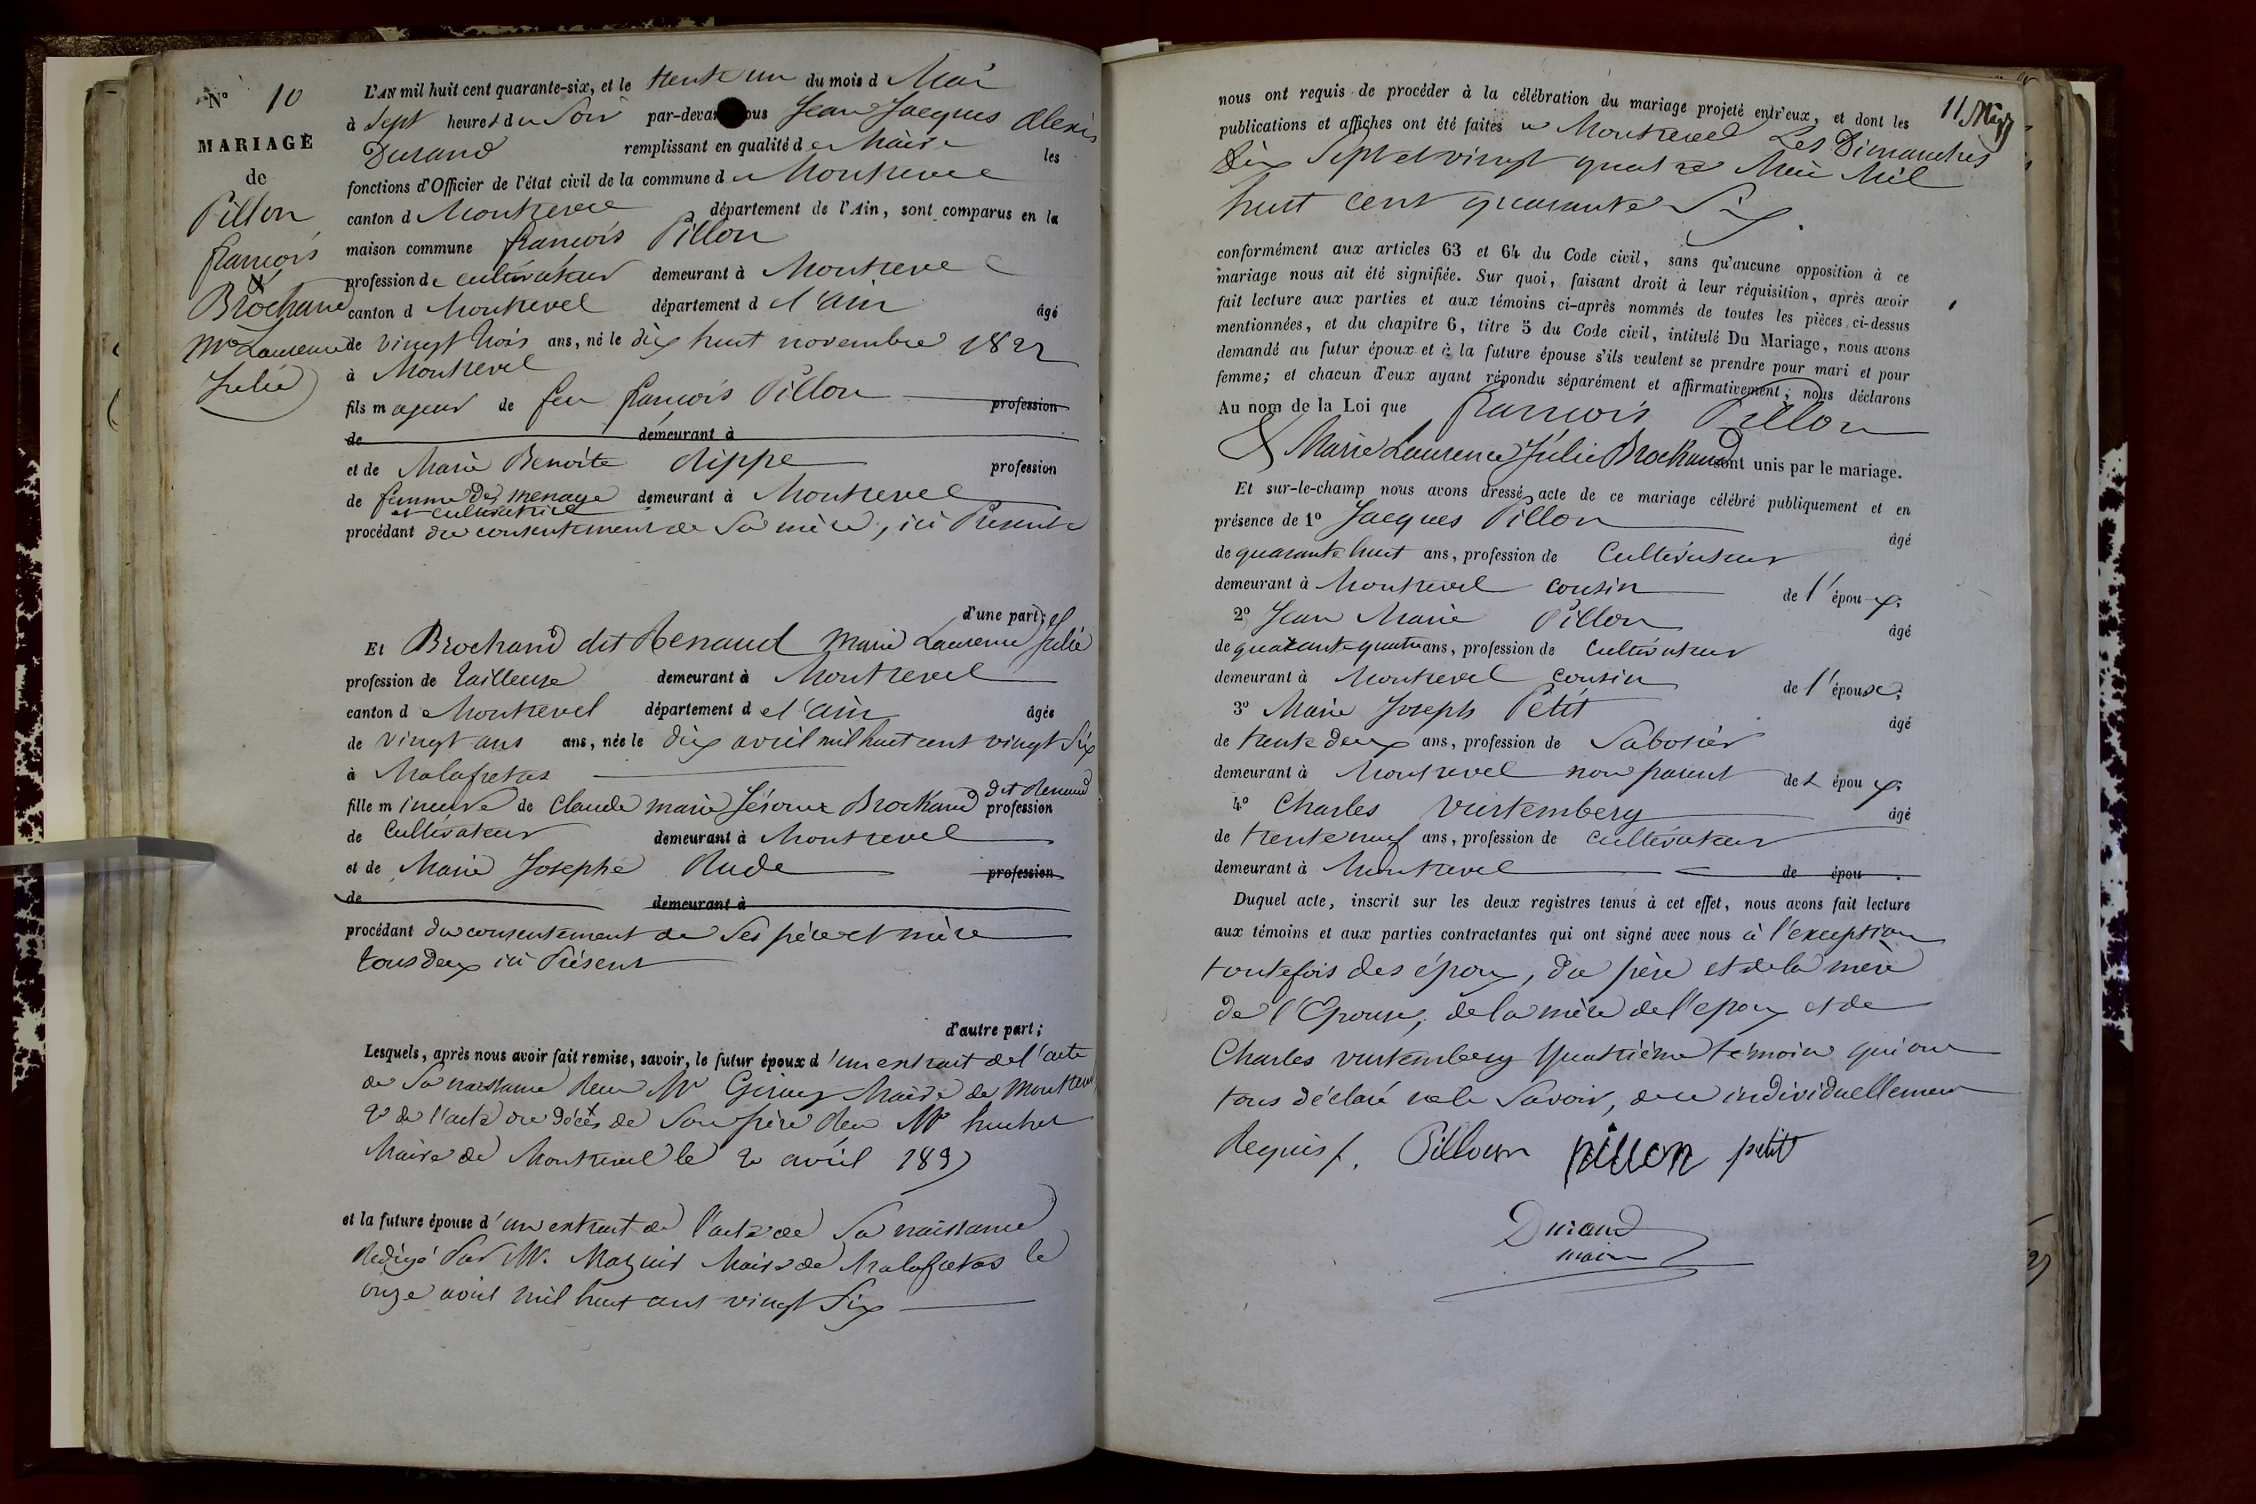 N° 10
MARIAGE
de
Pillon
françois
&
Brochand
Mie Laurence
Julie
L'AN mil huit cent quarante-six, et le trente un du mois d Mai
à Sept heures du Soir par-devant nous Jean Jacques Alexis
Durand remplissant en qualité de Maire les
fonctions d'Officier de l'état civil de la commune de Montrevel
canton de Montrevel département de l'Ain, sont comparus en la
maison commune françois Pillon
profession de cultivateur demeurant à Montrevel
canton de Montrevel département de l'ain âgé
de vingt trois ans, né le dix huit novembre 1822
à Montrevel
fils majeur de feu françois Pillon profession
de demeurant à
et de Marie Benoite Rippe profession
de femme de menage demeurant à Montrevel
et cultivatrice
procédant du consentement de Sa mère, ici Presente
d'une part; et
Et Brochand dit Renaud Marie Laurence Julie
profession de tailleuse demeurant à Montrevel
canton de Montrevel département de l'ain âgée
de vingt ans ans, née le dix avril mil huit cent vingt Six
à Malafretas
fille mineure de Claude marie Jérome Brochand dit Renaud profession
de Cultivateur demeurant à Montrevel
et de Marie Josephe Rude profession
de demeurant à
procédant du consentement de Ses père et mère
tous deux ici Présent
d'autre part;
Lesquels, après nous avoir fait remise, savoir, le futur époux d'un extrait de l'acte
de Sa naissance Recu Mr Maire de Montrevel
2° de l'acte de décès de Son père Recu Mr
Maire de Montrevel le 2 avril 1837
et la future épouse d'un extrait de l'acte de Sa naissance
Redigé Par Mr. Mazuir Maire de Malafretas le
onze avril mil huit cent vingt Six
11 Mars
nous ont requis de procéder à la célébration du mariage projeté entr'eux, et dont les
publications et affiches ont été faites a Montrevel Les Dimanches
Dix Sept et vingt quatre Mai Mil
huit cent quarante Six.
conformément aux articles 63 et 64 du Code civil, sans qu'aucune opposition à ce
mariage nous ait été signifiée. Sur quoi, faisant droit à leur réquisition, après avoir
fait lecture aux parties et aux témoins ci-après nommés de toutes les pièces ci-dessus
mentionnées, et du chapitre 6, titre 5 du Code civil, intitulé Du Mariage, nous avons
demandé au futur époux et à la future épouse s'ils veulent se prendre pour mari et pour
femme; et chacun d'eux ayant répondu séparément et affirmativement, nous déclarons
Au nom de la Loi que françois Pillon
& Marie Laurence Julie Brochand sont unis par le mariage.
Et sur-le-champ nous avons dressé acte de ce mariage célébré publiquement et en
présence de 1° Jacques Pillon
âgé
de quarante huit ans, profession de Cultivateur
demeurant à Montrevel cousin de l'époux;
2° Jean Marie Pillon
âgé
de quarante quatre ans, profession de Cultivateur
demeurant à Montrevel cousin de l'épouse;
3° Marie Joseph Petit
âgé
de trente deux ans, profession de Sabotier
demeurant à Montrevel non parent de L époux;
4° Charles Vurtemberg
âgé
de trente neuf ans, profession de cultivateur
demeurant à Montrevel de épou .
Duquel acte, inscrit sur les deux registres tenus à cet effet, nous avons fait lecture
aux témoins et aux parties contractantes qui ont signé avec nous à l'exception
toutefois des époux, du père et de la mère
de l'Epouse, de la mère de l'epoux et de
Charles Vurtemberg quatrième témoin qui ont
tous déclaré ne le Savoir, de ce individuellement
Requis. Pilloun pillon petit
Durand
maire